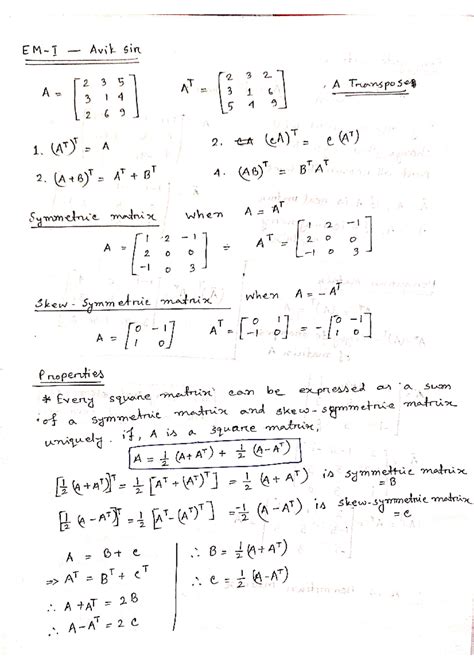 EM-I — Avik sir
A = [2 3 5; 3 1 4; 2 6 9] A^T = [2 3 2; 3 1 6; 5 4 9] A Transposes
1. (A^T)^T = A 2. (cA)^T = c(A^T)
2. (A+B)^T = A^T + B^T 4. (AB)^T = B^T A^T
Symmetric matrix when A = A^T
A = [1 2 -1; 2 0 0; -1 0 3] = A^T = [1 2 -1; 2 0 0; -1 0 3]
Skew-Symmetric matrix when A = -A^T
A = [0 -1; 1 0] A^T = [0 1; -1 0] = -[0 -1; 1 0]
Properties
* Every square matrix can be expressed as a sum
of a symmetric matrix and skew-symmetric matrix
uniquely. if, A is a square matrix,
A = 1/2 (A+A^T) + 1/2 (A-A^T)
[1/2 (A+A^T)]^T = 1/2 [A^T + (A^T)^T] = 1/2 (A + A^T) is symmetric matrix
= B
[1/2 (A-A^T)]^T = 1/2 [A^T - (A^T)^T] = -1/2 (A - A^T) is skew-symmetric matrix
= C
A = B + C ∴ B = 1/2 (A+A^T)
⇒ A^T = B^T + C^T ∴ C = 1/2 (A-A^T)
∴ A + A^T = 2B
∴ A - A^T = 2C